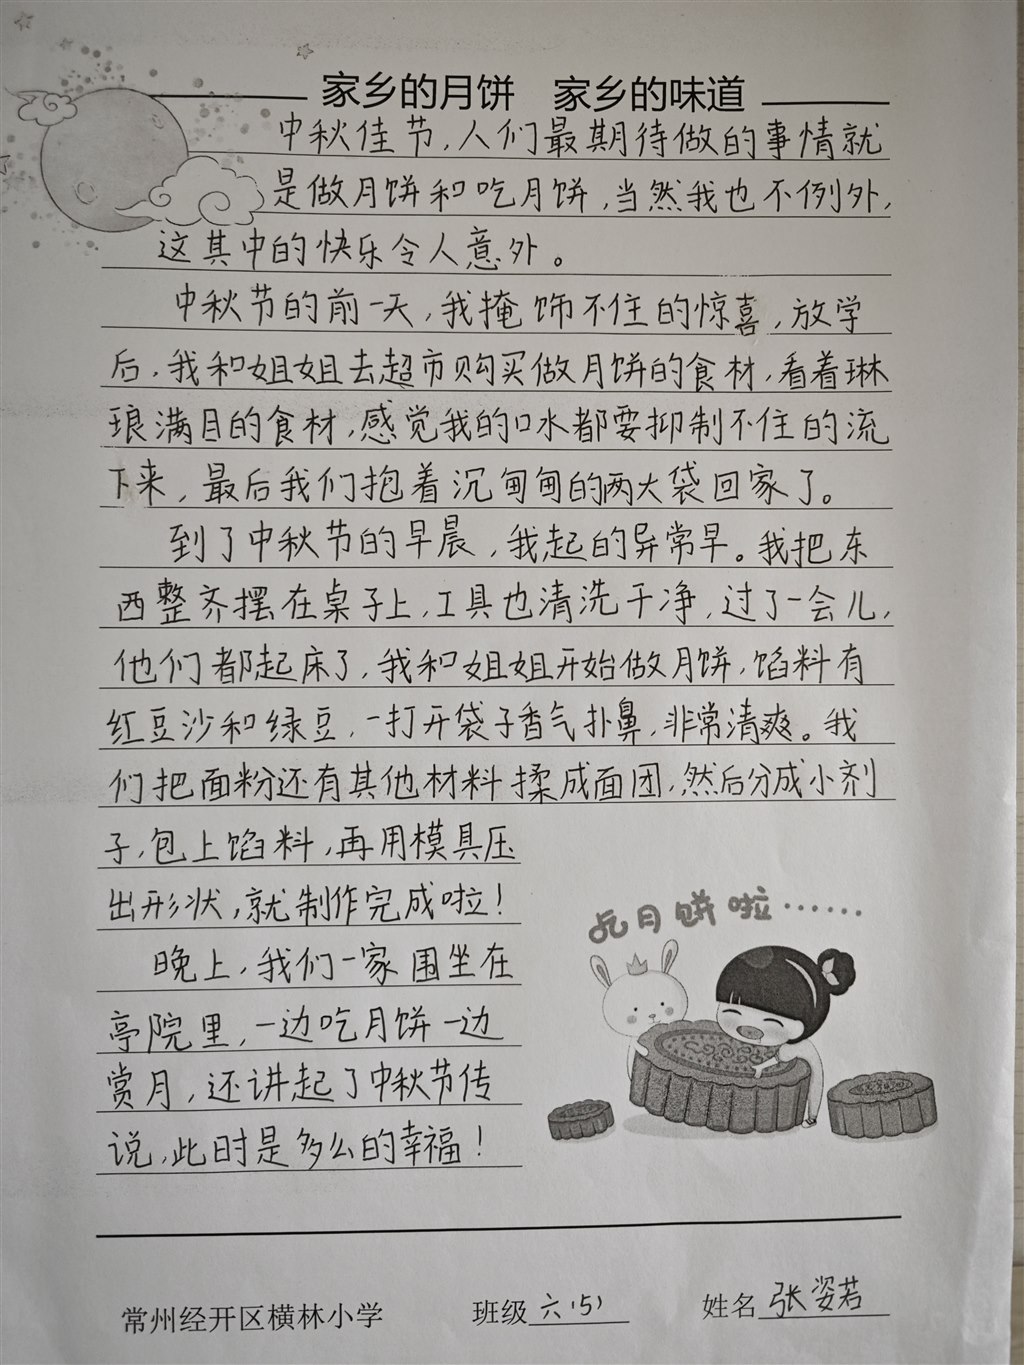 家乡的月饼 家乡的味道
中秋佳节,人们最期待做的事情就
是做月饼和吃月饼,当然我也不例外,
这其中的快乐令人意外。
中秋节的前一天,我掩饰不住的惊喜,放学
后,我和姐姐去超市购买做月饼的食材,看着琳
琅满目的食材,感觉我的口水都要抑制不住的流
下来,最后我们抱着沉甸甸的两大袋回家了。
到了中秋节的早晨,我起的异常早。我把东
西整齐摆在桌子上,工具也清洗干净,过了一会儿,
他们都起床了,我和姐姐开始做月饼,馅料有
红豆沙和绿豆,一打开袋子香气扑鼻,非常清爽。我
们把面粉还有其他材料揉成面团,然后分成小剂
子,包上馅料,再用模具压
出形状,就制作完成啦!
吃月饼啦……
晚上,我们一家围坐在
亭院里,一边吃月饼一边
赏月,还讲起了中秋节传
说,此时是多么的幸福!
常州经开区横林小学 班级六(5) 姓名张姿若